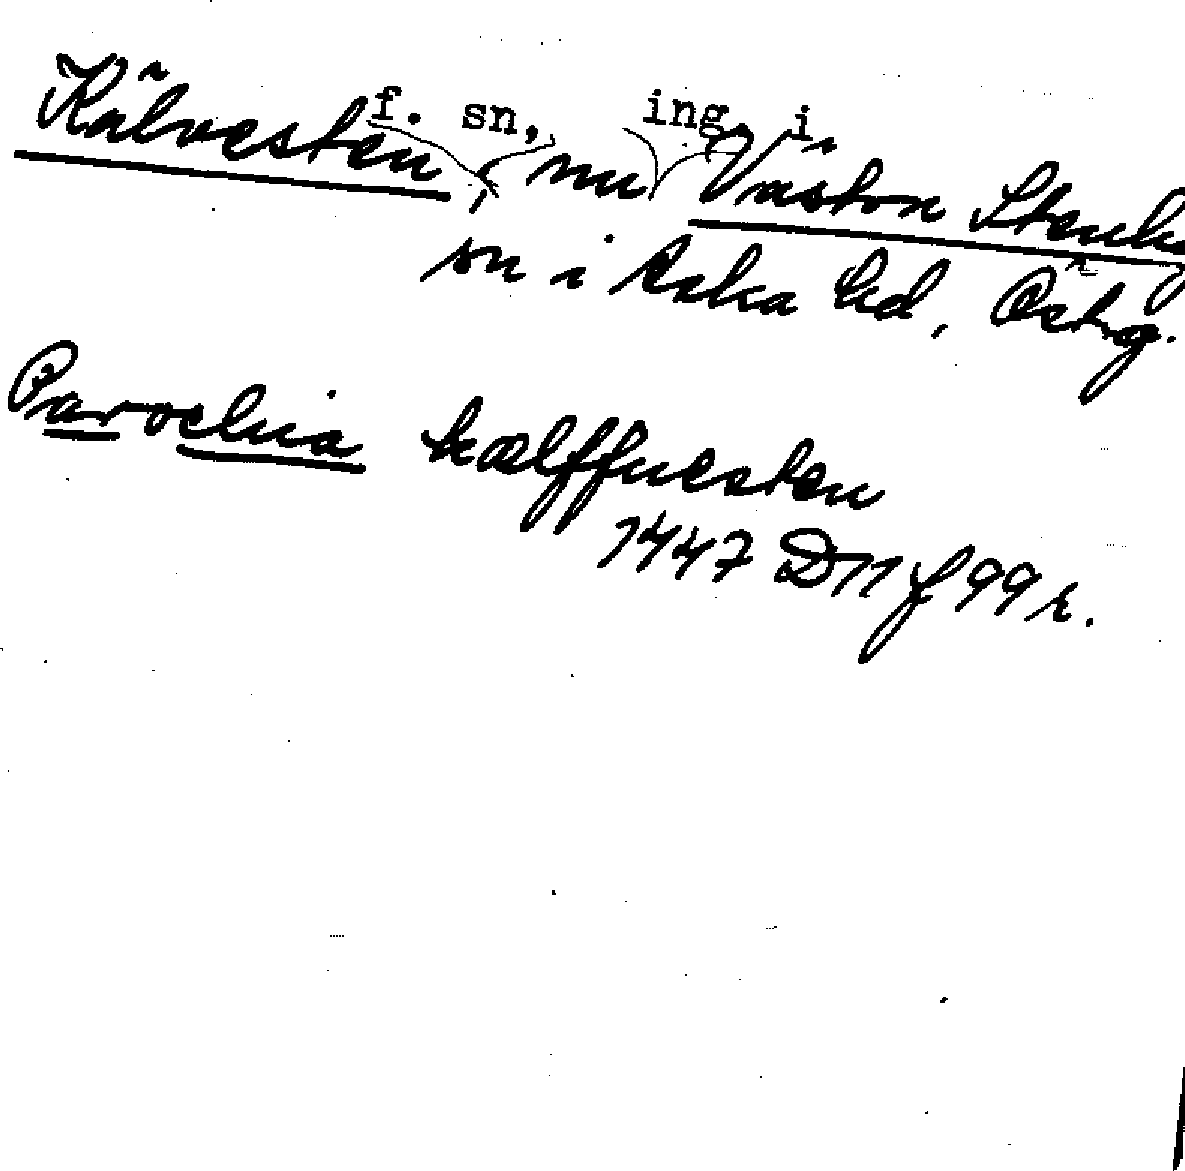 Kälvesten f. sn, nu ing i Västra Stenby
sn i Aska hd, Östg.
Parochia kælffuesten
1447 D 11 f 99 r.